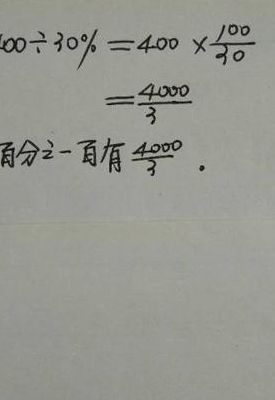 400÷30%=400×100/30
=4000/3
百分之一百有4000/3.